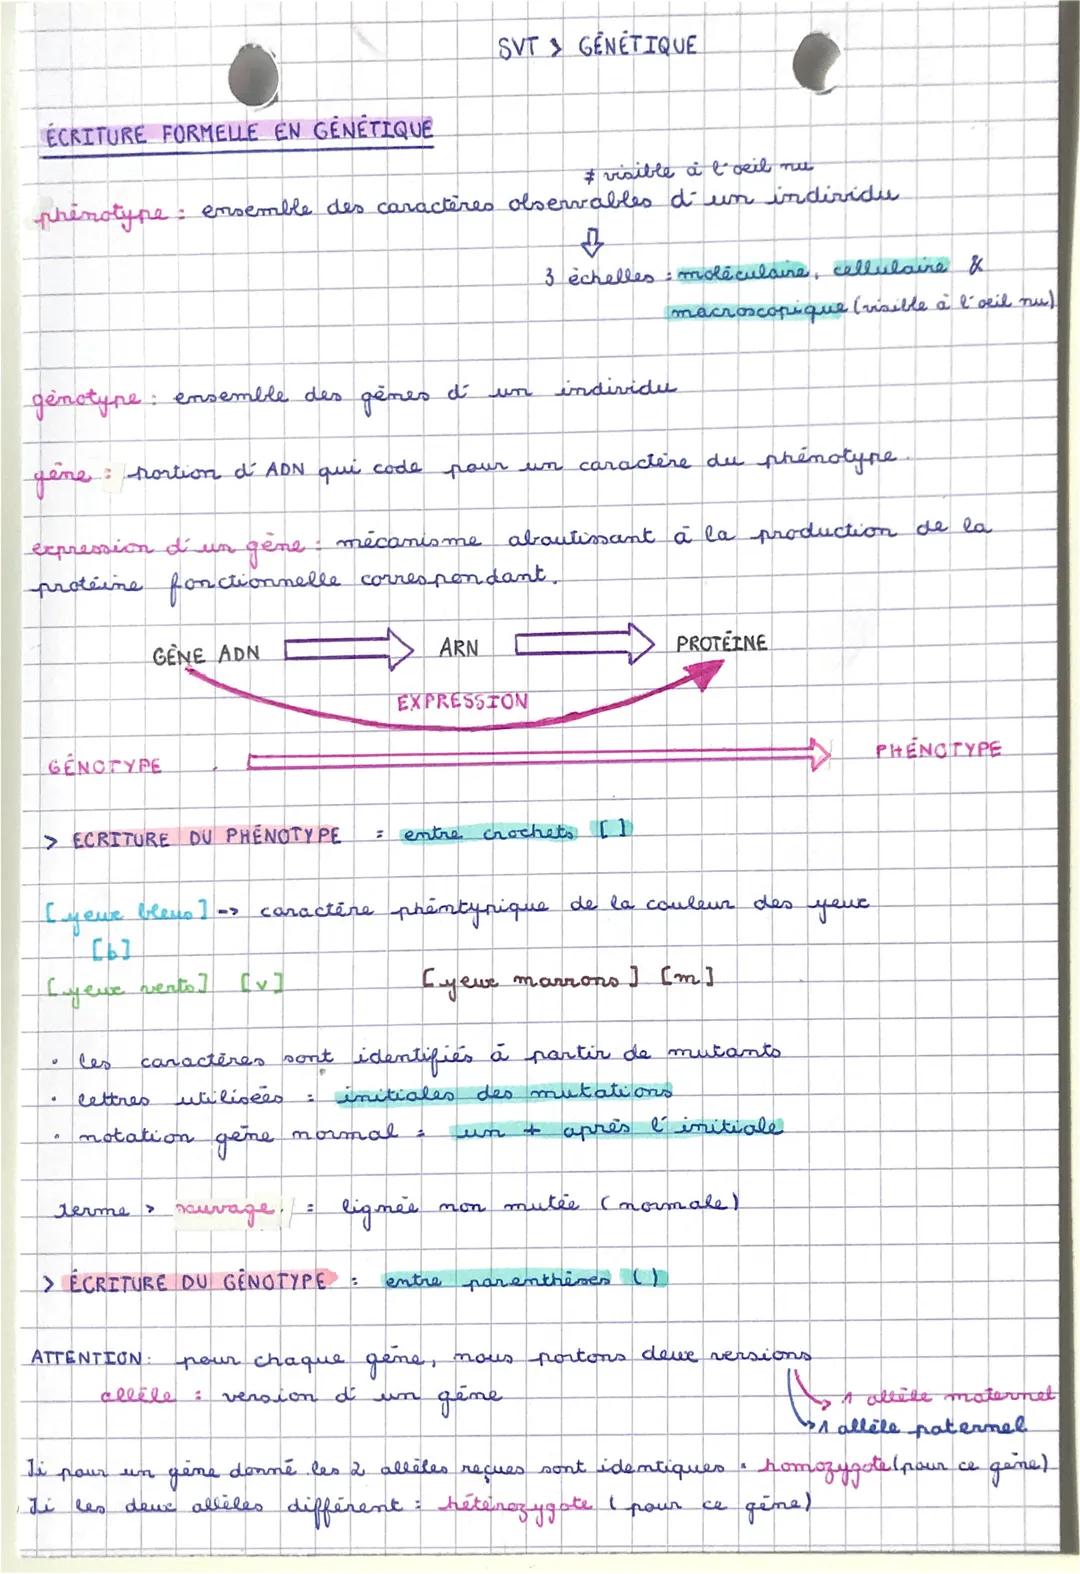 SVT > GÉNÉTIQUE
ÉCRITURE FORMELLE EN GÉNÉTIQUE
≠ visible à l'oeil nu
phénotype : ensemble des caractères observables d'un individu
⇩
3 échelles : moléculaire, cellulaire &
macroscopique (visible à l'oeil nu)
génotype : ensemble des gènes d'un individu
gène : portion d'ADN qui code pour un caractère du phénotype.
expression d'un gène : mécanisme aboutissant à la production de la
protéine fonctionnelle correspondant.
GÈNE ADN ⇨ ARN ⇨ PROTÉINE
EXPRESSION
GÉNOTYPE ⇨ PHÉNOTYPE
> ECRITURE DU PHÉNOTYPE = entre crochets [ ]
[yeux bleus] -> caractère phéntypique de la couleur des yeux
[b]
[yeux verts] [v] [yeux marrons] [m]
• les caractères sont identifiés à partir de mutants
• lettres utilisées : initiales des mutations
• notation gène normal = un + après l'initiale
terme > sauvage = lignée non mutée (normale)
> ÉCRITURE DU GÉNOTYPE : entre parenthèses ( )
ATTENTION : pour chaque gène, nous portons deux versions
allèle : version d'un gène
1 allèle maternel
1 allèle paternel
Si pour un gène donné les 2 allèles reçues sont identiques = homozygote (pour ce gène)
Si les deux allèles différent : hétérozygote (pour ce gène)